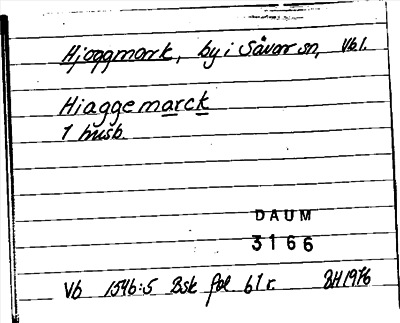 Hjoggmark, by i Sävar sn, Vb l.
Hiaggemarck
1 husb.
DAUM
3166
Vb 1546:5 Bsk fol 61 r. BH 1976